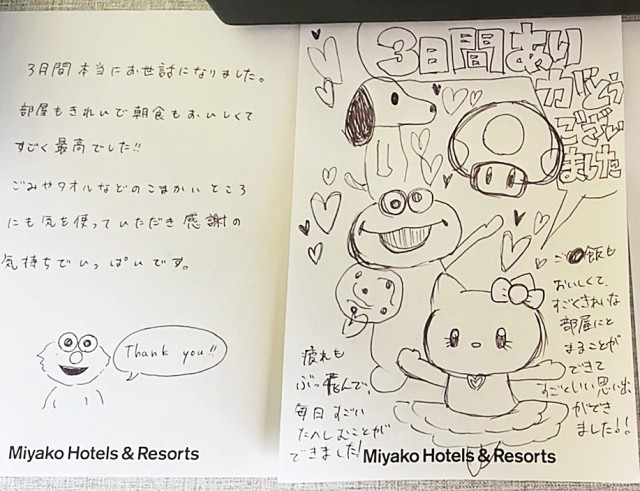 3日間本当にお世話になりました。
部屋もきれいで朝食もおいしくて
すごく最高でした!!
ごみやタオルなどのこまかいところ
にも気を使っていただき感謝の
気持ちでいっぱいです。
Thank you!!
Miyako Hotels & Resorts
3日間あり
がとう
ござい
ました
ご飯も
おいしくて、
すごくきれいな
部屋にと
まることが
できて
すごといい思い出
ができ
ました!!
疲れも
ぶっ飛んで、
毎日すごい
たへしむことが
できました!
Miyako Hotels & Resorts